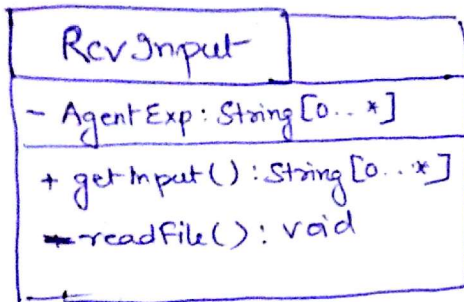 RcvInput
- AgentExp: String[0..*]
+ getInput(): String[0..*]
- readFile(): void